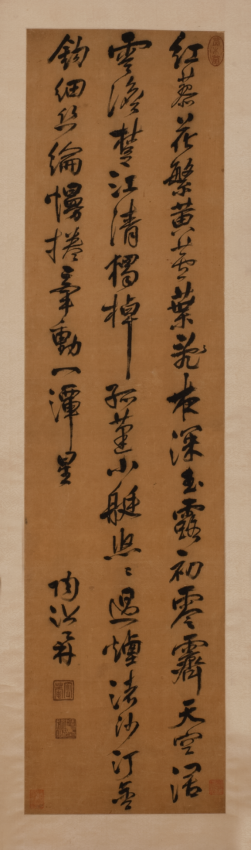 紅蓼花繁黃蘆葉亂夜深玉露初零霽天空闊
雲澹楚江清獨棹孤蓬小艇悠〻過煙渚沙汀金
鈎細絲綸慢捲牽動一潭星
陶